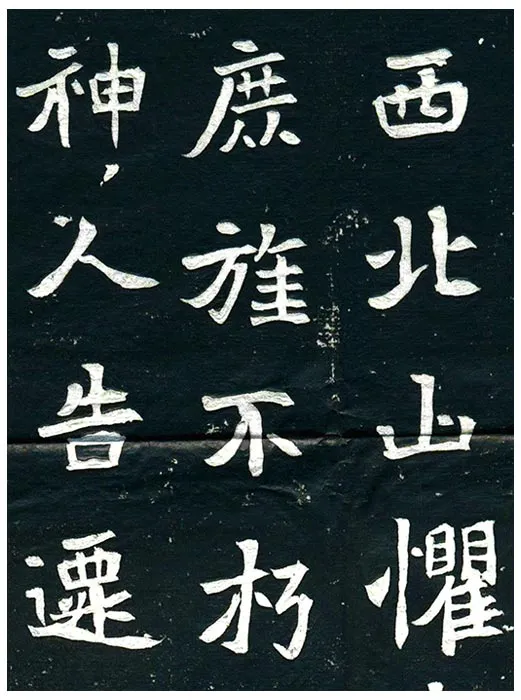 西北山懼
庶旌不朽
神人告遷